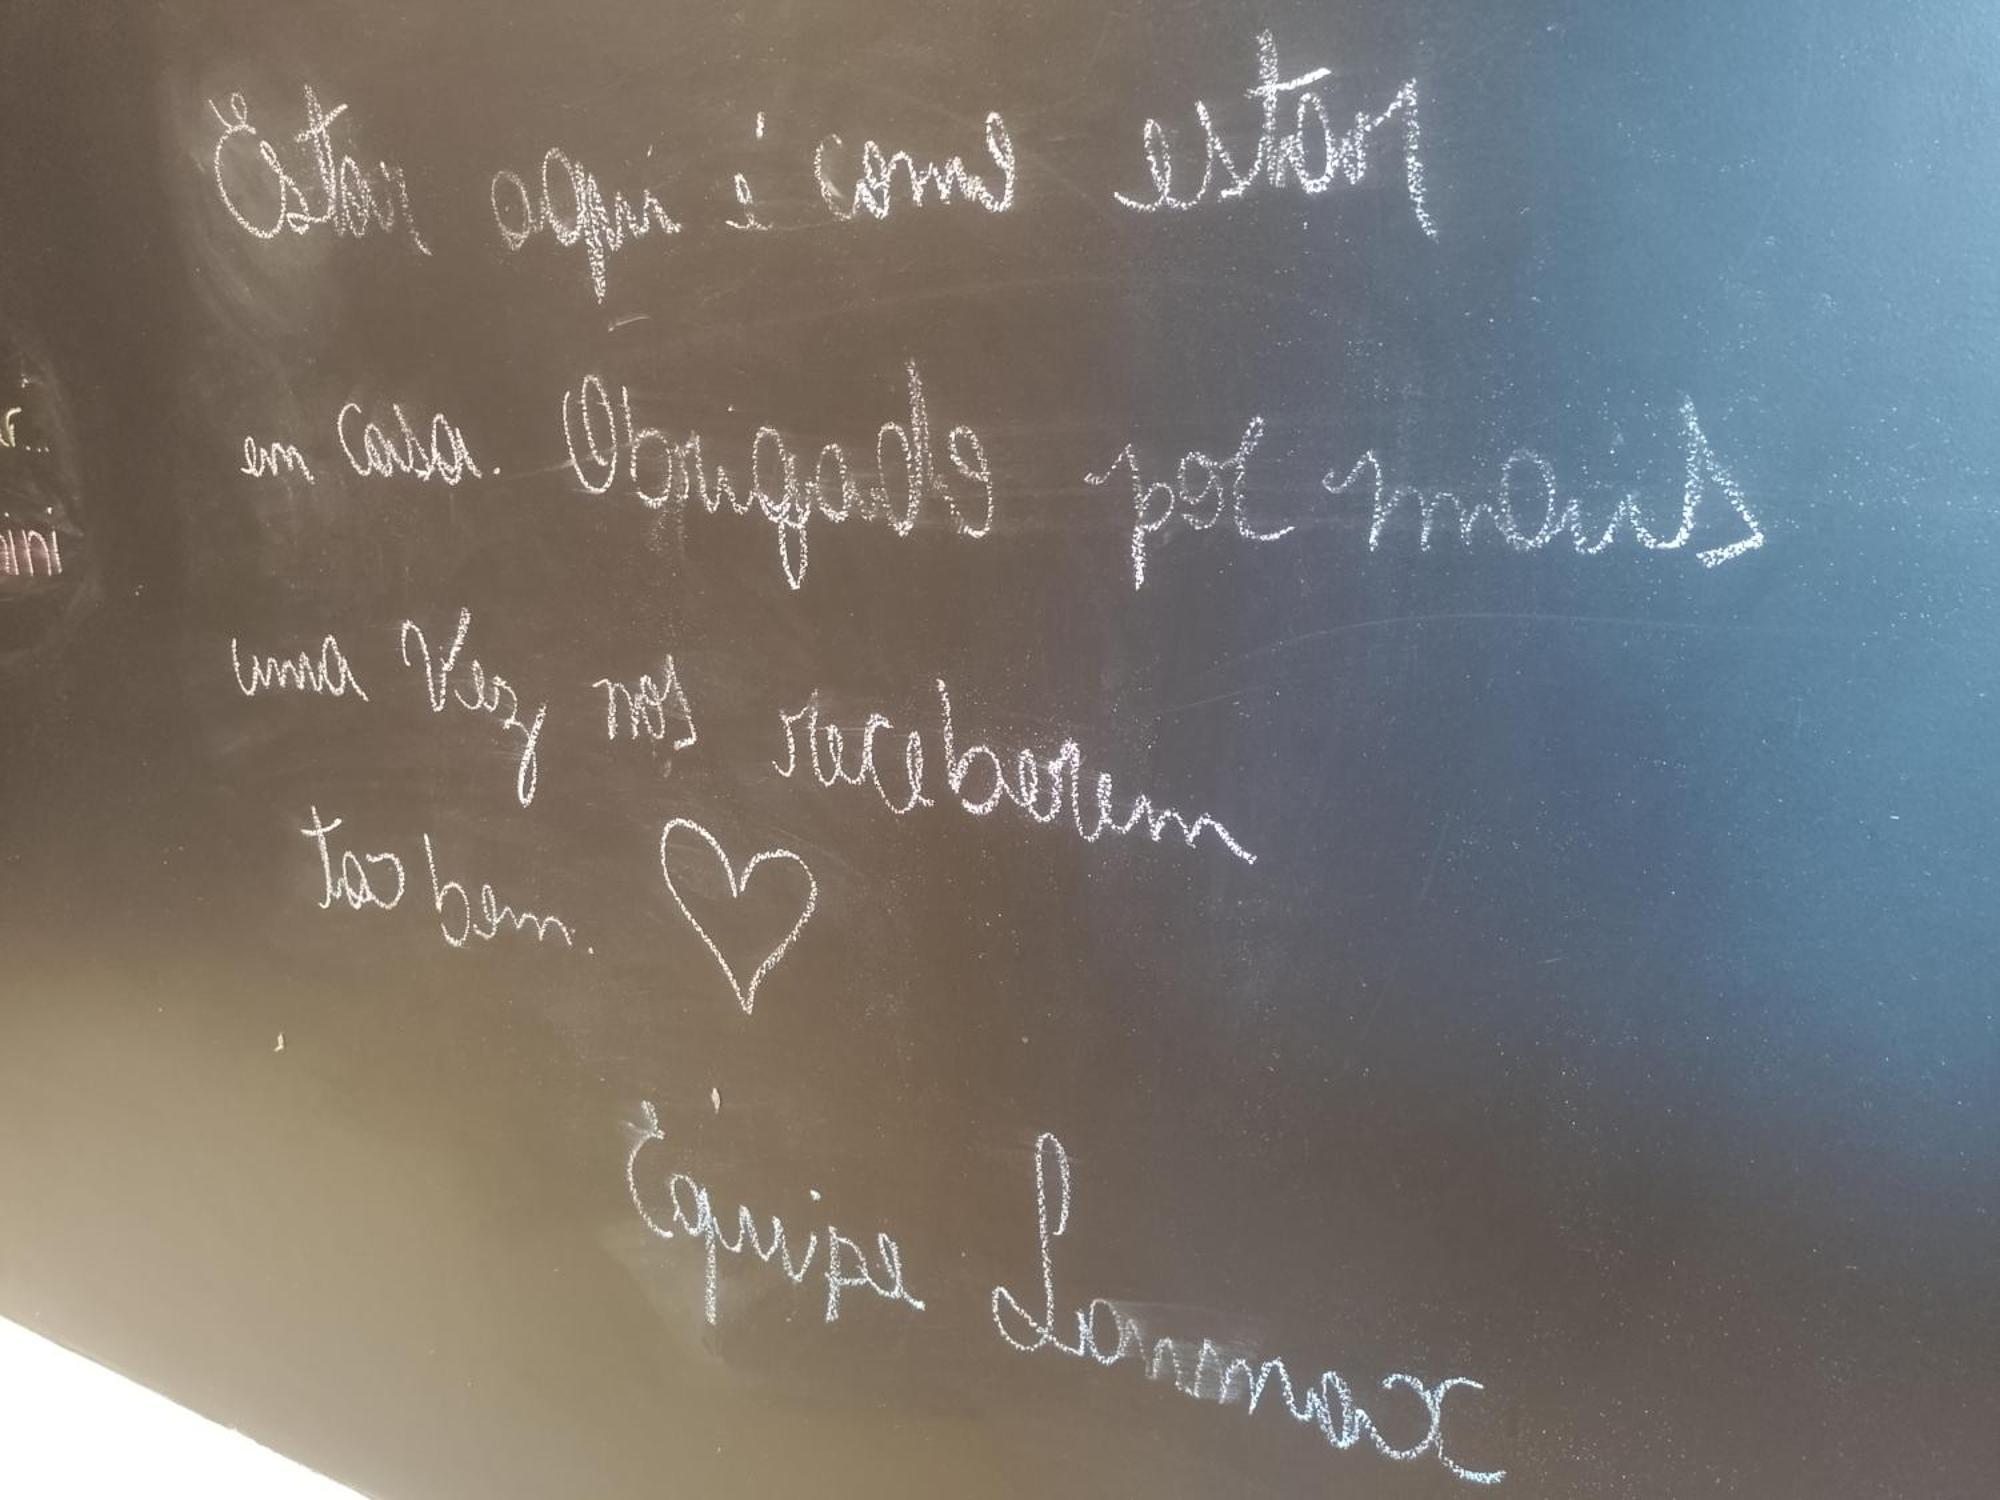 Estar aqui é como estar
em casa. Obrigado por mais
uma vez nos receberem
tao bem. ♡
Equipe Lanmax
ini